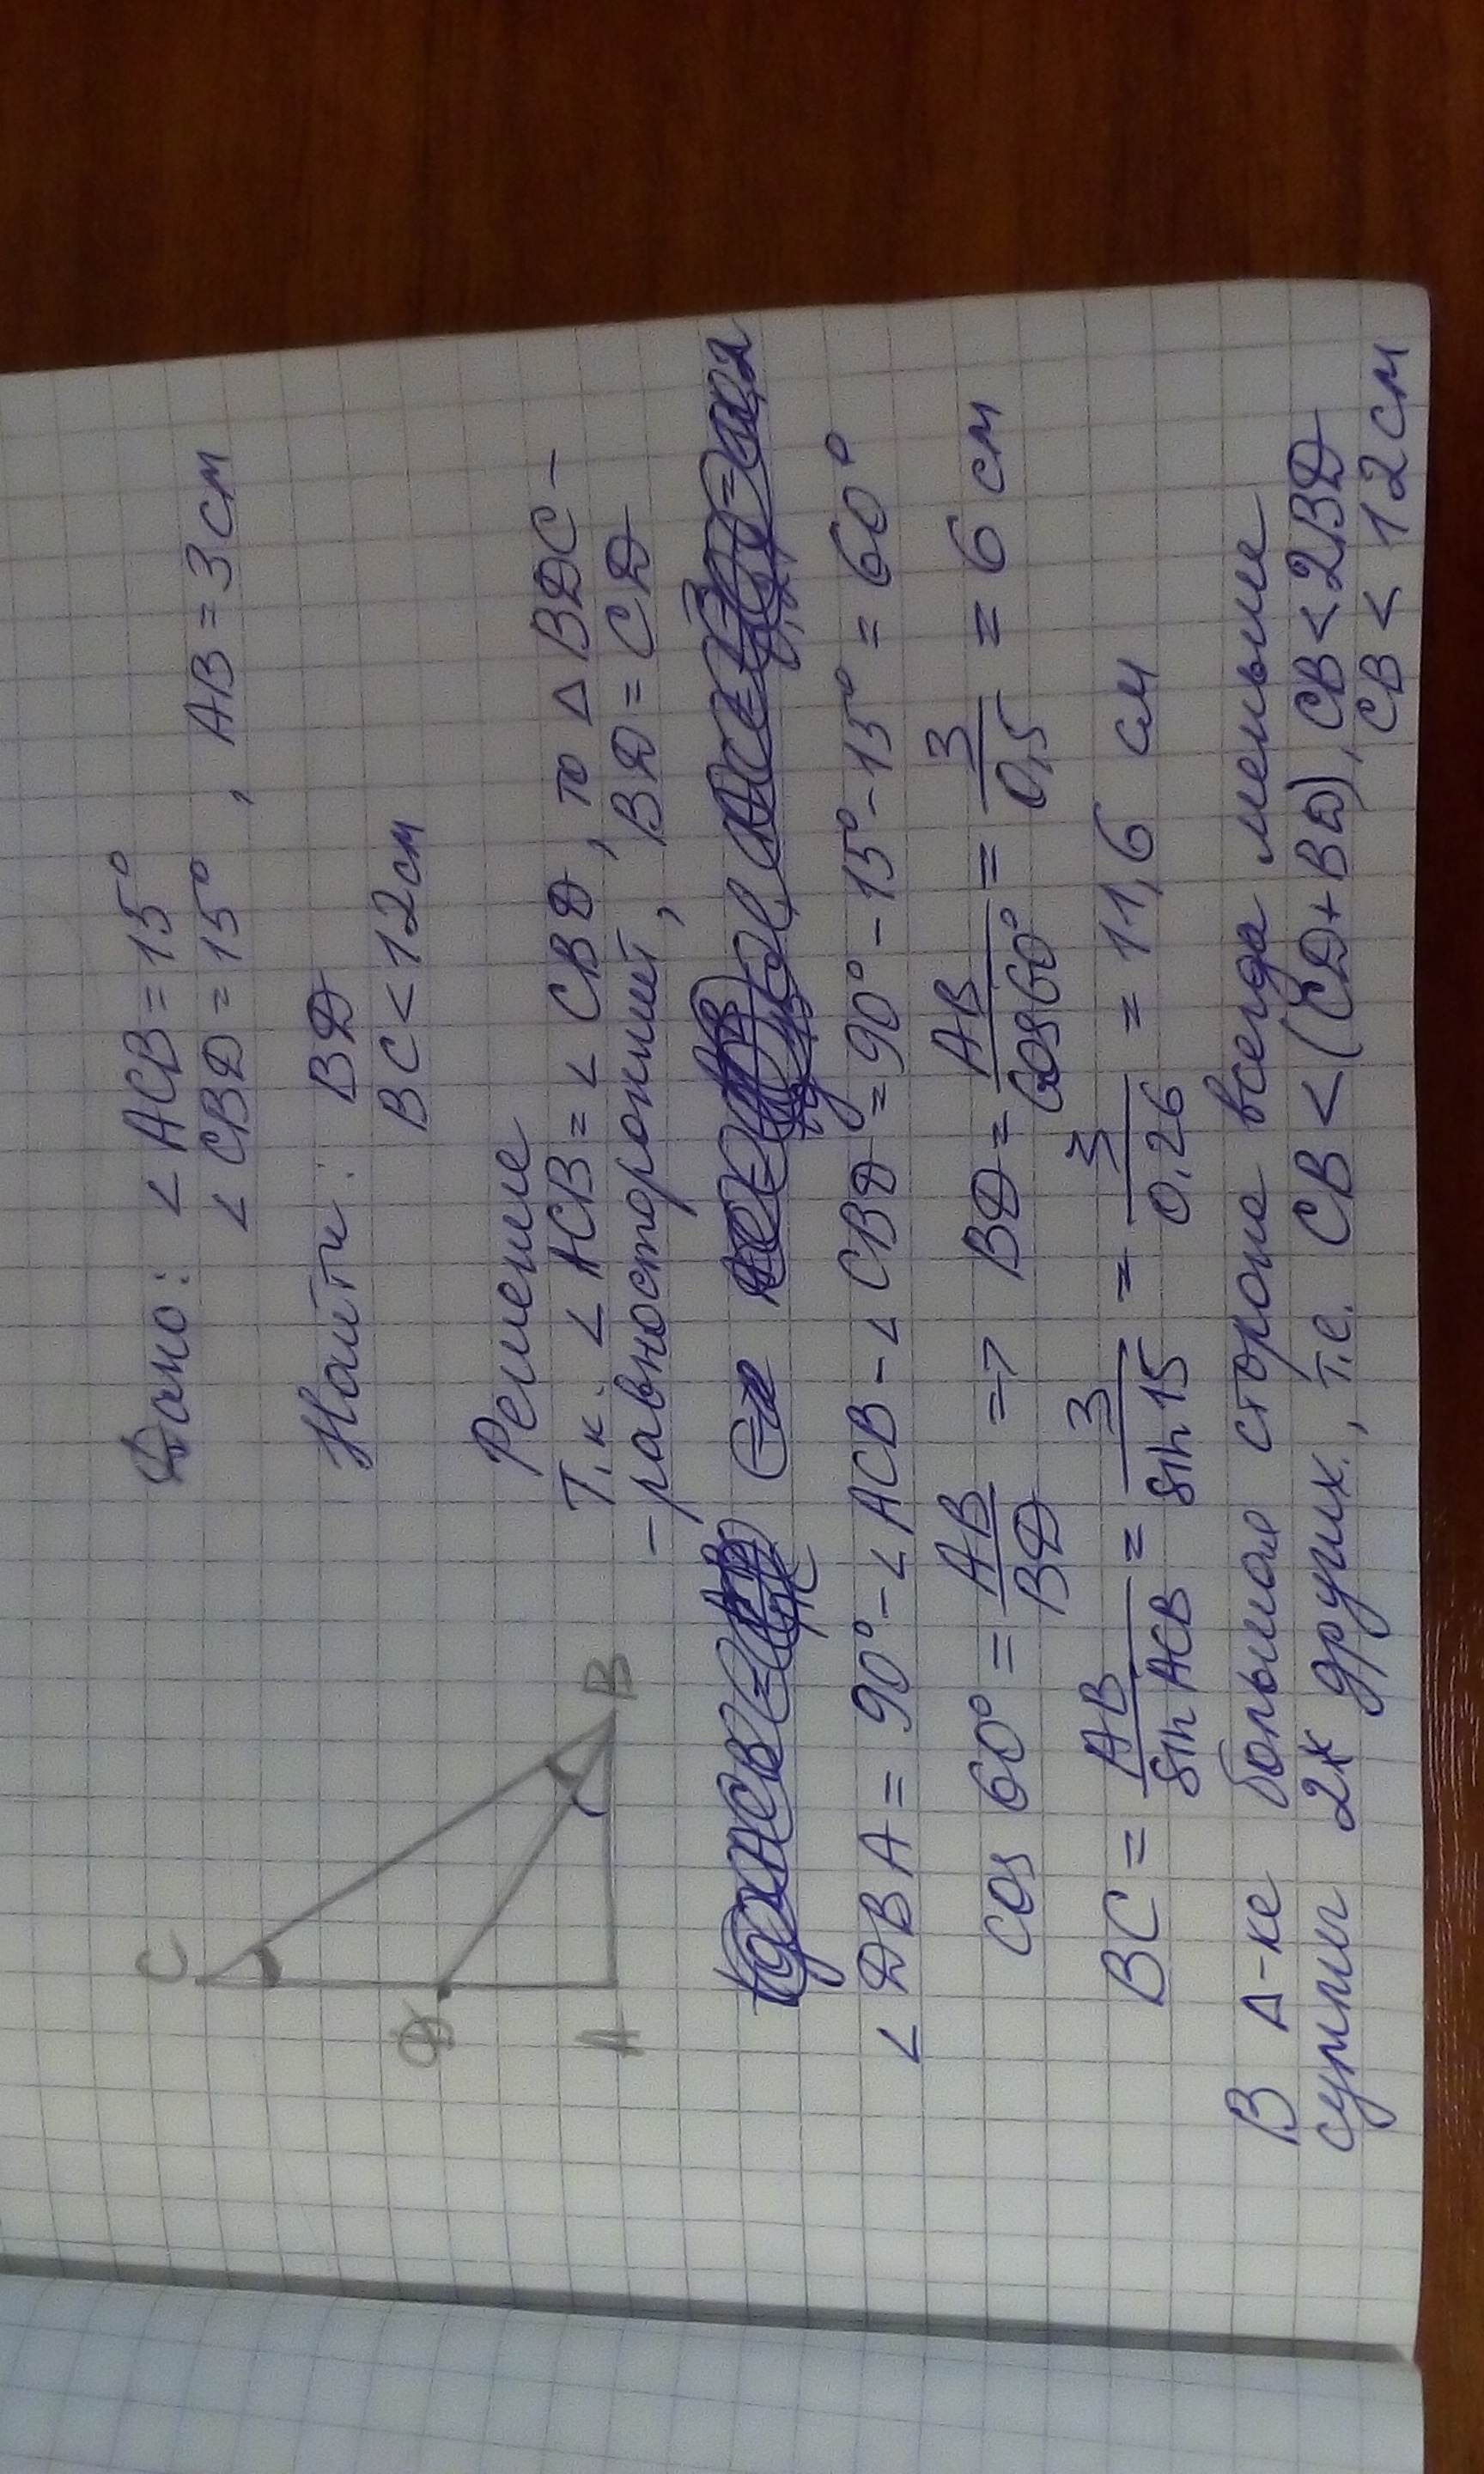 C
D
A
B
Дано: ∠ ACB = 15°
∠ CBD = 15°, AB = 3 см
Найти: BD
BC < 12 см
Решение
Т.к. ∠ ACB = ∠ CBD, то Δ BDC –
– равносторонний, BD = CD
∠ DBA = 90° - ∠ ACB - ∠ CBD = 90° - 15° - 15° = 60°
cos 60° = AB/BD => BD = AB/cos60° = 3/0,5 = 6 см
BC = AB/sin ACB = 3/sin 15 = 3/0,26 = 11,6 см
В Δ-ке большая сторона всегда меньше
суммы 2х других, т.е. CB < (CD + BD), CB < 2BD
CB < 12 см